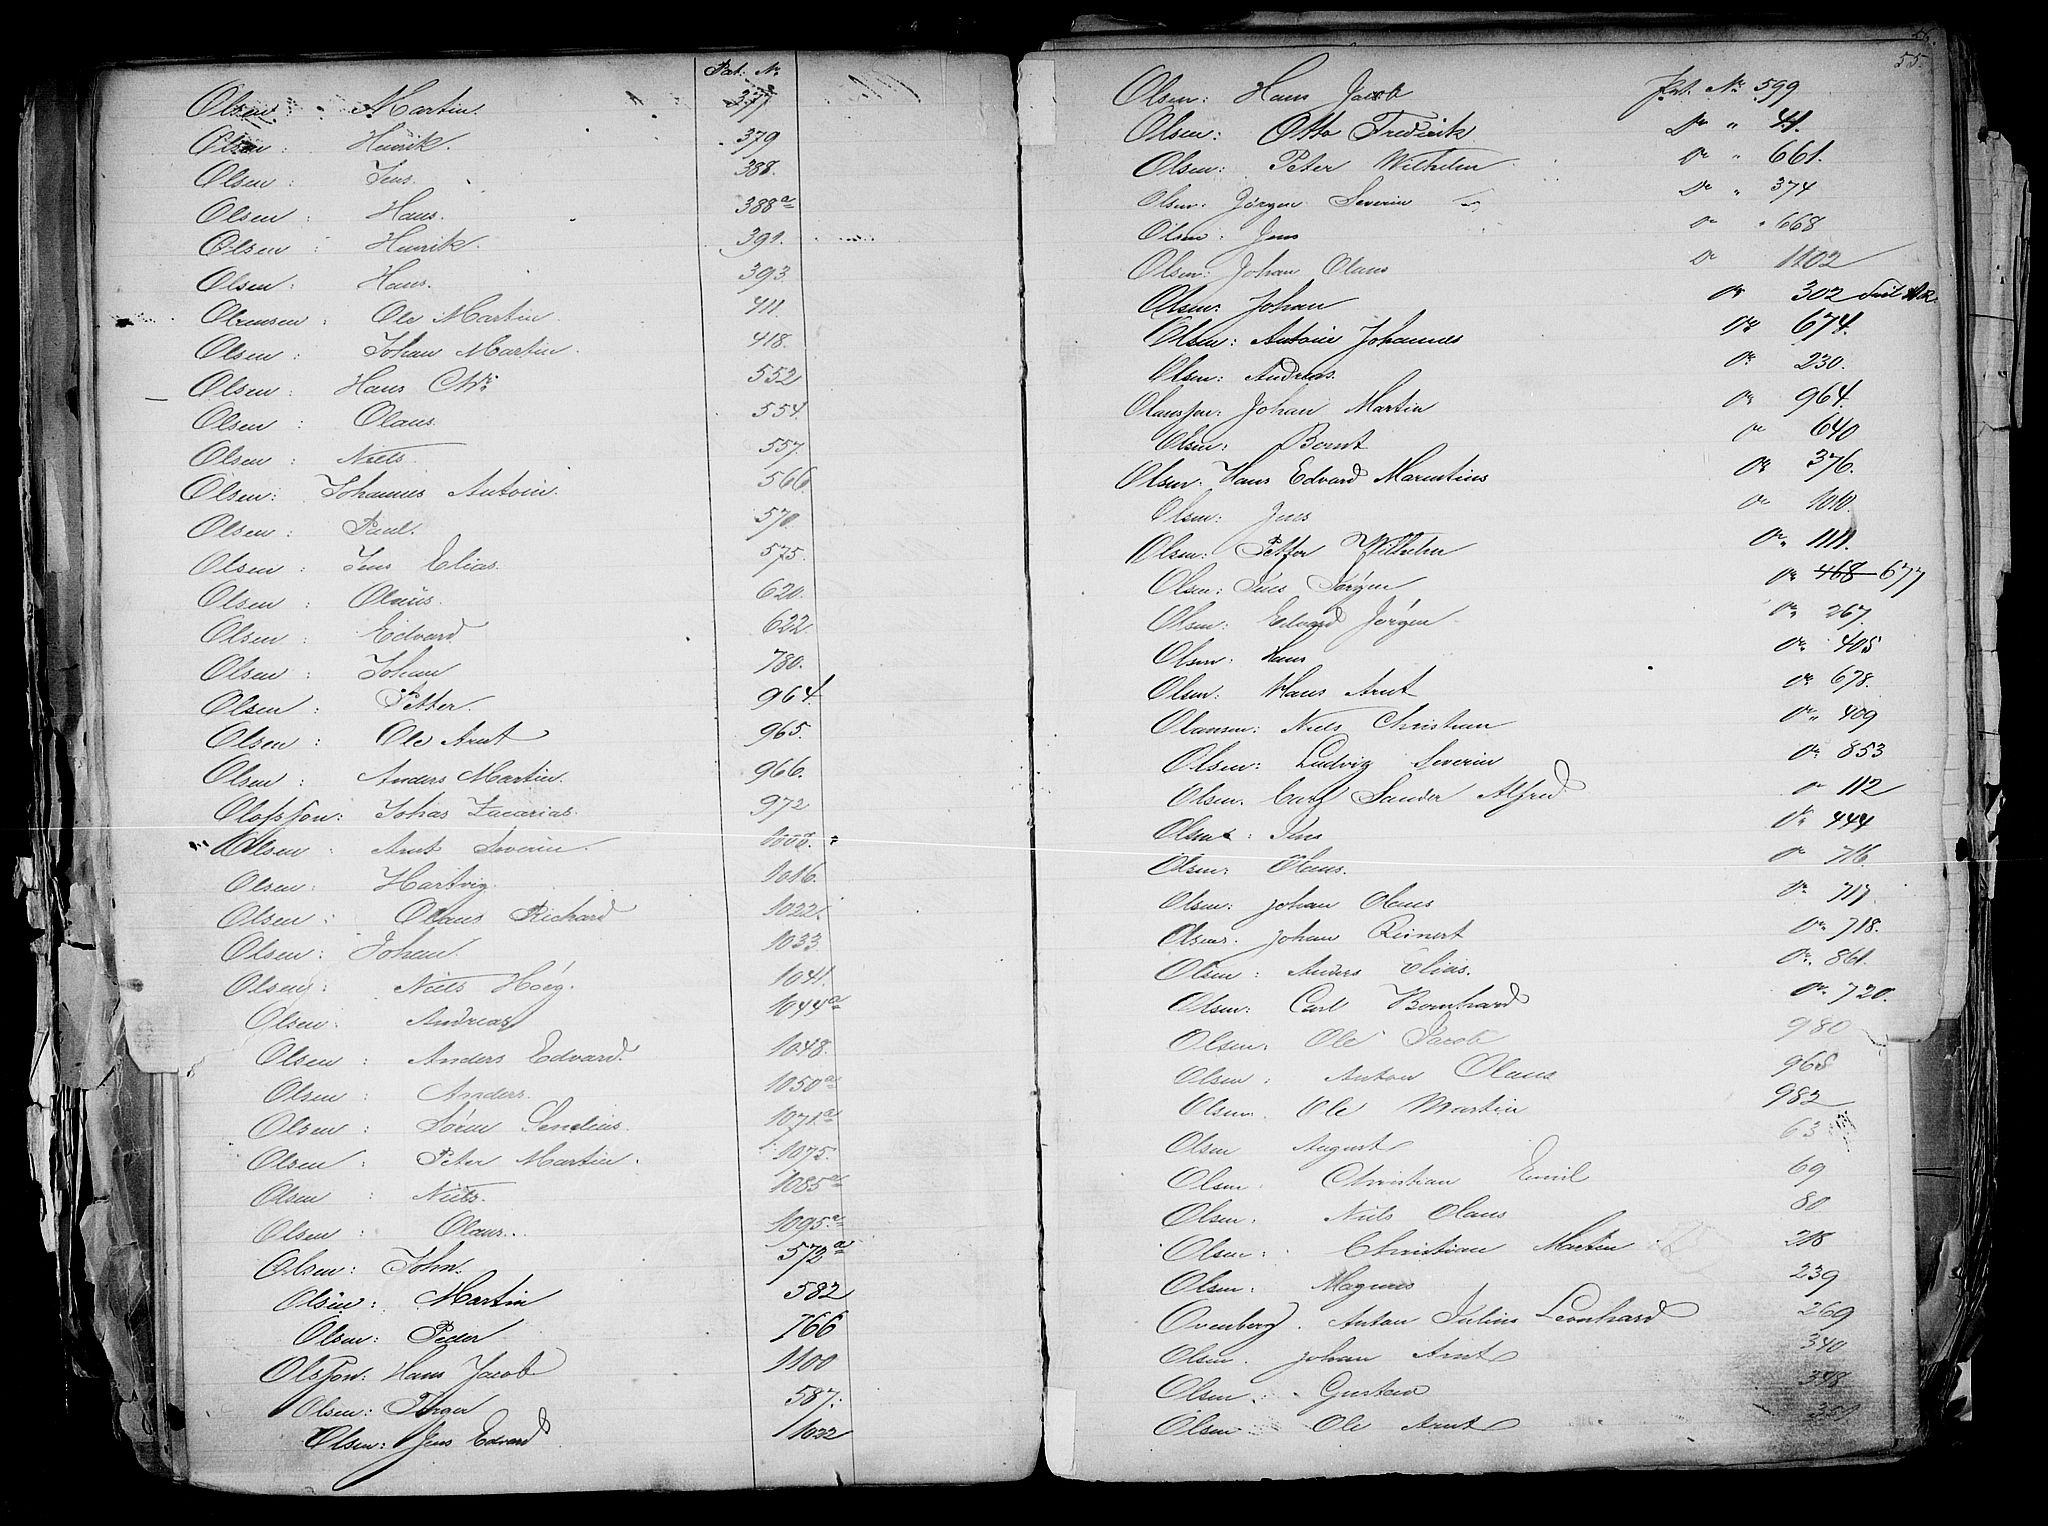 Pat. No
Olsen Martin. 377
Olsen : Henrik. 379
Olsen : Jens. 388.
Olsen : Hans. 388a
Olsen : Henrik. 391.
Olsen : Hans. 393.
Olsen : Ole Martin. 411.
Olsen : Johan Martin. 418.
Olsen : Hans Chr. 552
Olsen : Olaus. 554.
Olsen : Niels. 557.
Olsen : Johannes Antoin. 566.
Olsen : Paul. 570.
Olsen : Jens Elias. 575.
Olsen : Olaus. 620.
Olsen : Edvard 622.
Olsen : Johan 780.
Olsen : Petter. 964.
Olsen : Ole Arnt 965.
Olsen : Anders Martin. 966.
Olofsson: Johas Zacarias. 972
Olsen : Arnt Severin.
Olsen : Hartvig. 1016.
Olsen : Olaus Richard 1022.
Olsen : Johan. 1033
Olsen : Niels Höeg. 1041.
Olsen : Andreas 1044a
Olsen : Anders Edvard. 1048.
Olsen : Anders. 1050a
Olsen : Sören 1071a
Olsen : Peter Martin. 1075.
Olsen Niels. 1085a
Olsen : Olaus. 1095a
Olsen : John. 572a
Olsen : Martin 582
Olsen : Peder 766
Olsson: Hans Jacob 1100
Olsen : Torger 587.
Olsen : Jens Edvard 1022
55.
Olsen: Hans Jacob Pat. No 599
Olsen: Otto Fredrik Do " 41.
Olsen: Peter Wilhelm Do " 661.
Olsen: Jörgen Severin Do " 374
Olsen: Jens Do " 668
Olsen: Johan Olaus Do 1102
Olsen: Johan Do 302
Olsen: Antoin Johannes Do 674.
Olsen: Andreas. Do 230.
Olaussen: Johan Martin Do 964.
Olsen: Bernt Do 640
Olsen: Hans Edvard Marentius Do 376.
Olsen: Jens Do 1010.
Olsen: Petter Wilhelm Do 1111.
Olsen: Jens Jörgen Do 468 677
Olsen: Edvard Jörgen Do 267.
Olsen: Hans Do 405
Olsen: Hans Arnt Do 678.
Olausen: Niels Christian Do 409
Olsen: Ludvig Severin Do 853
Olsen: Carl Sander Alfred Do 112
Olsen: Jens Do 444
Olsen: Olaus. Do 716
Olsen: Johan Olaus Do 717.
Olsen: Johan Reinert Do 718.
Olsen: Anders Elias. Do 861.
Olsen: Carl Bernhard Do 720.
Olsen: Ole Jacob 980
Olsen: Anton Olaus 968
Olsen. Ole Martin 982
Olsen August 63
Olsen. Christian Emil 69
Olsen. Niels Olaus 80
Olsen: Christian Martin 218
Olsen: Magnus 239
Ovenberg. Anton Julius Leonhard 269
Olsen. Johan Arnt 340
Olsen: Gustav 398
Olsen Ole Arnt